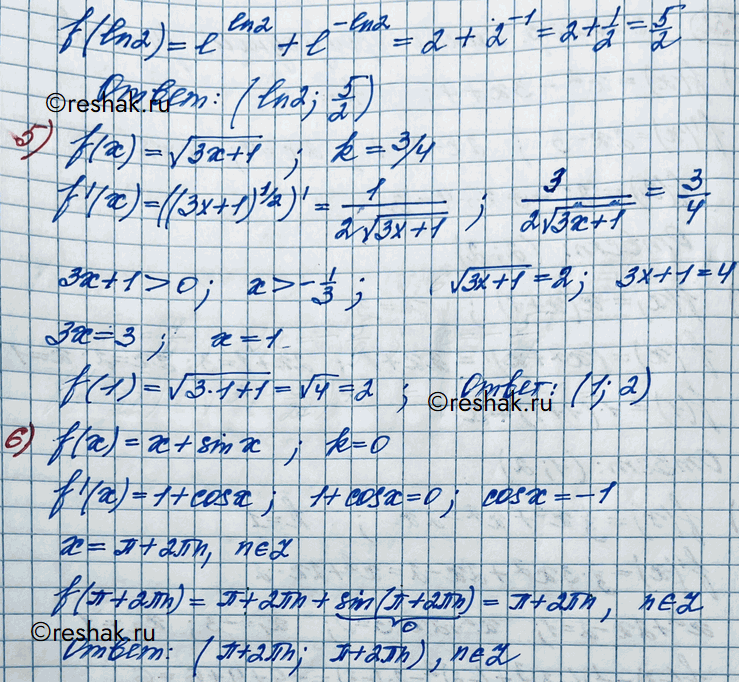 f(ln2) = e^{ln2} + e^{-ln2} = 2 + 2^{-1} = 2 + 1/2 = 5/2
Ответ: (ln2; 5/2)
©reshak.ru
5) f(x) = √(3x+1) ; k = 3/4
f'(x) = ((3x+1)^{1/2})' = 1/(2√(3x+1)) ; 3/(2√(3x+1)) = 3/4
3x+1 > 0; x > -1/3 ; √(3x+1) = 2; 3x+1 = 4
3x = 3 ; x = 1
f(1) = √(3·1+1) = √4 = 2 ; Ответ: (1; 2)
©reshak.ru
6) f(x) = x + sin x ; k = 0
f'(x) = 1 + cosx ; 1 + cosx = 0 ; cosx = -1
x = π + 2πn, n∈Z
f(π+2πn) = π + 2πn + sin(π+2πn) = π + 2πn, n∈Z
0
©reshak.ru
Ответ: (π+2πn; π+2πn), n∈Z